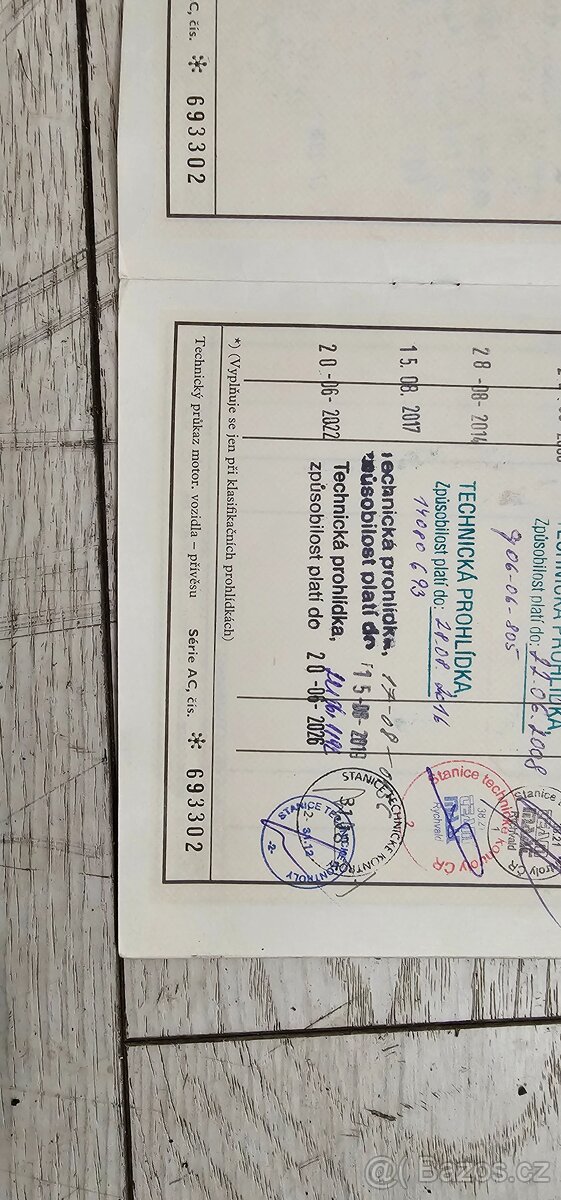 AC, čís. ✻ 693302
TECHNICKÁ PROHLÍDKA,
Způsobilost platí do: 22.06.2008
906-06-805
28 -08- 2014
TECHNICKÁ PROHLÍDKA,
Způsobilost platí do: 28.08.2016
14080693
Stanice technické kontroly ČR
38.21
Rychvald
15. 08. 2017
Technická prohlídka,
způsobilost platí do
17-08-
STANICE TECHNICKÉ KONTROLY
20 -06- 2022
Technická prohlídka,
způsobilost platí do 20-06-2026
STANICE TECHNICKÉ KONTROLY
31.12
-2-
*) (Vyplňuje se jen při klasifikačních prohlídkách)
Technický průkaz motor. vozidla – přívěsu Série AC, čís. ✻ 693302
@ Bazos.cz